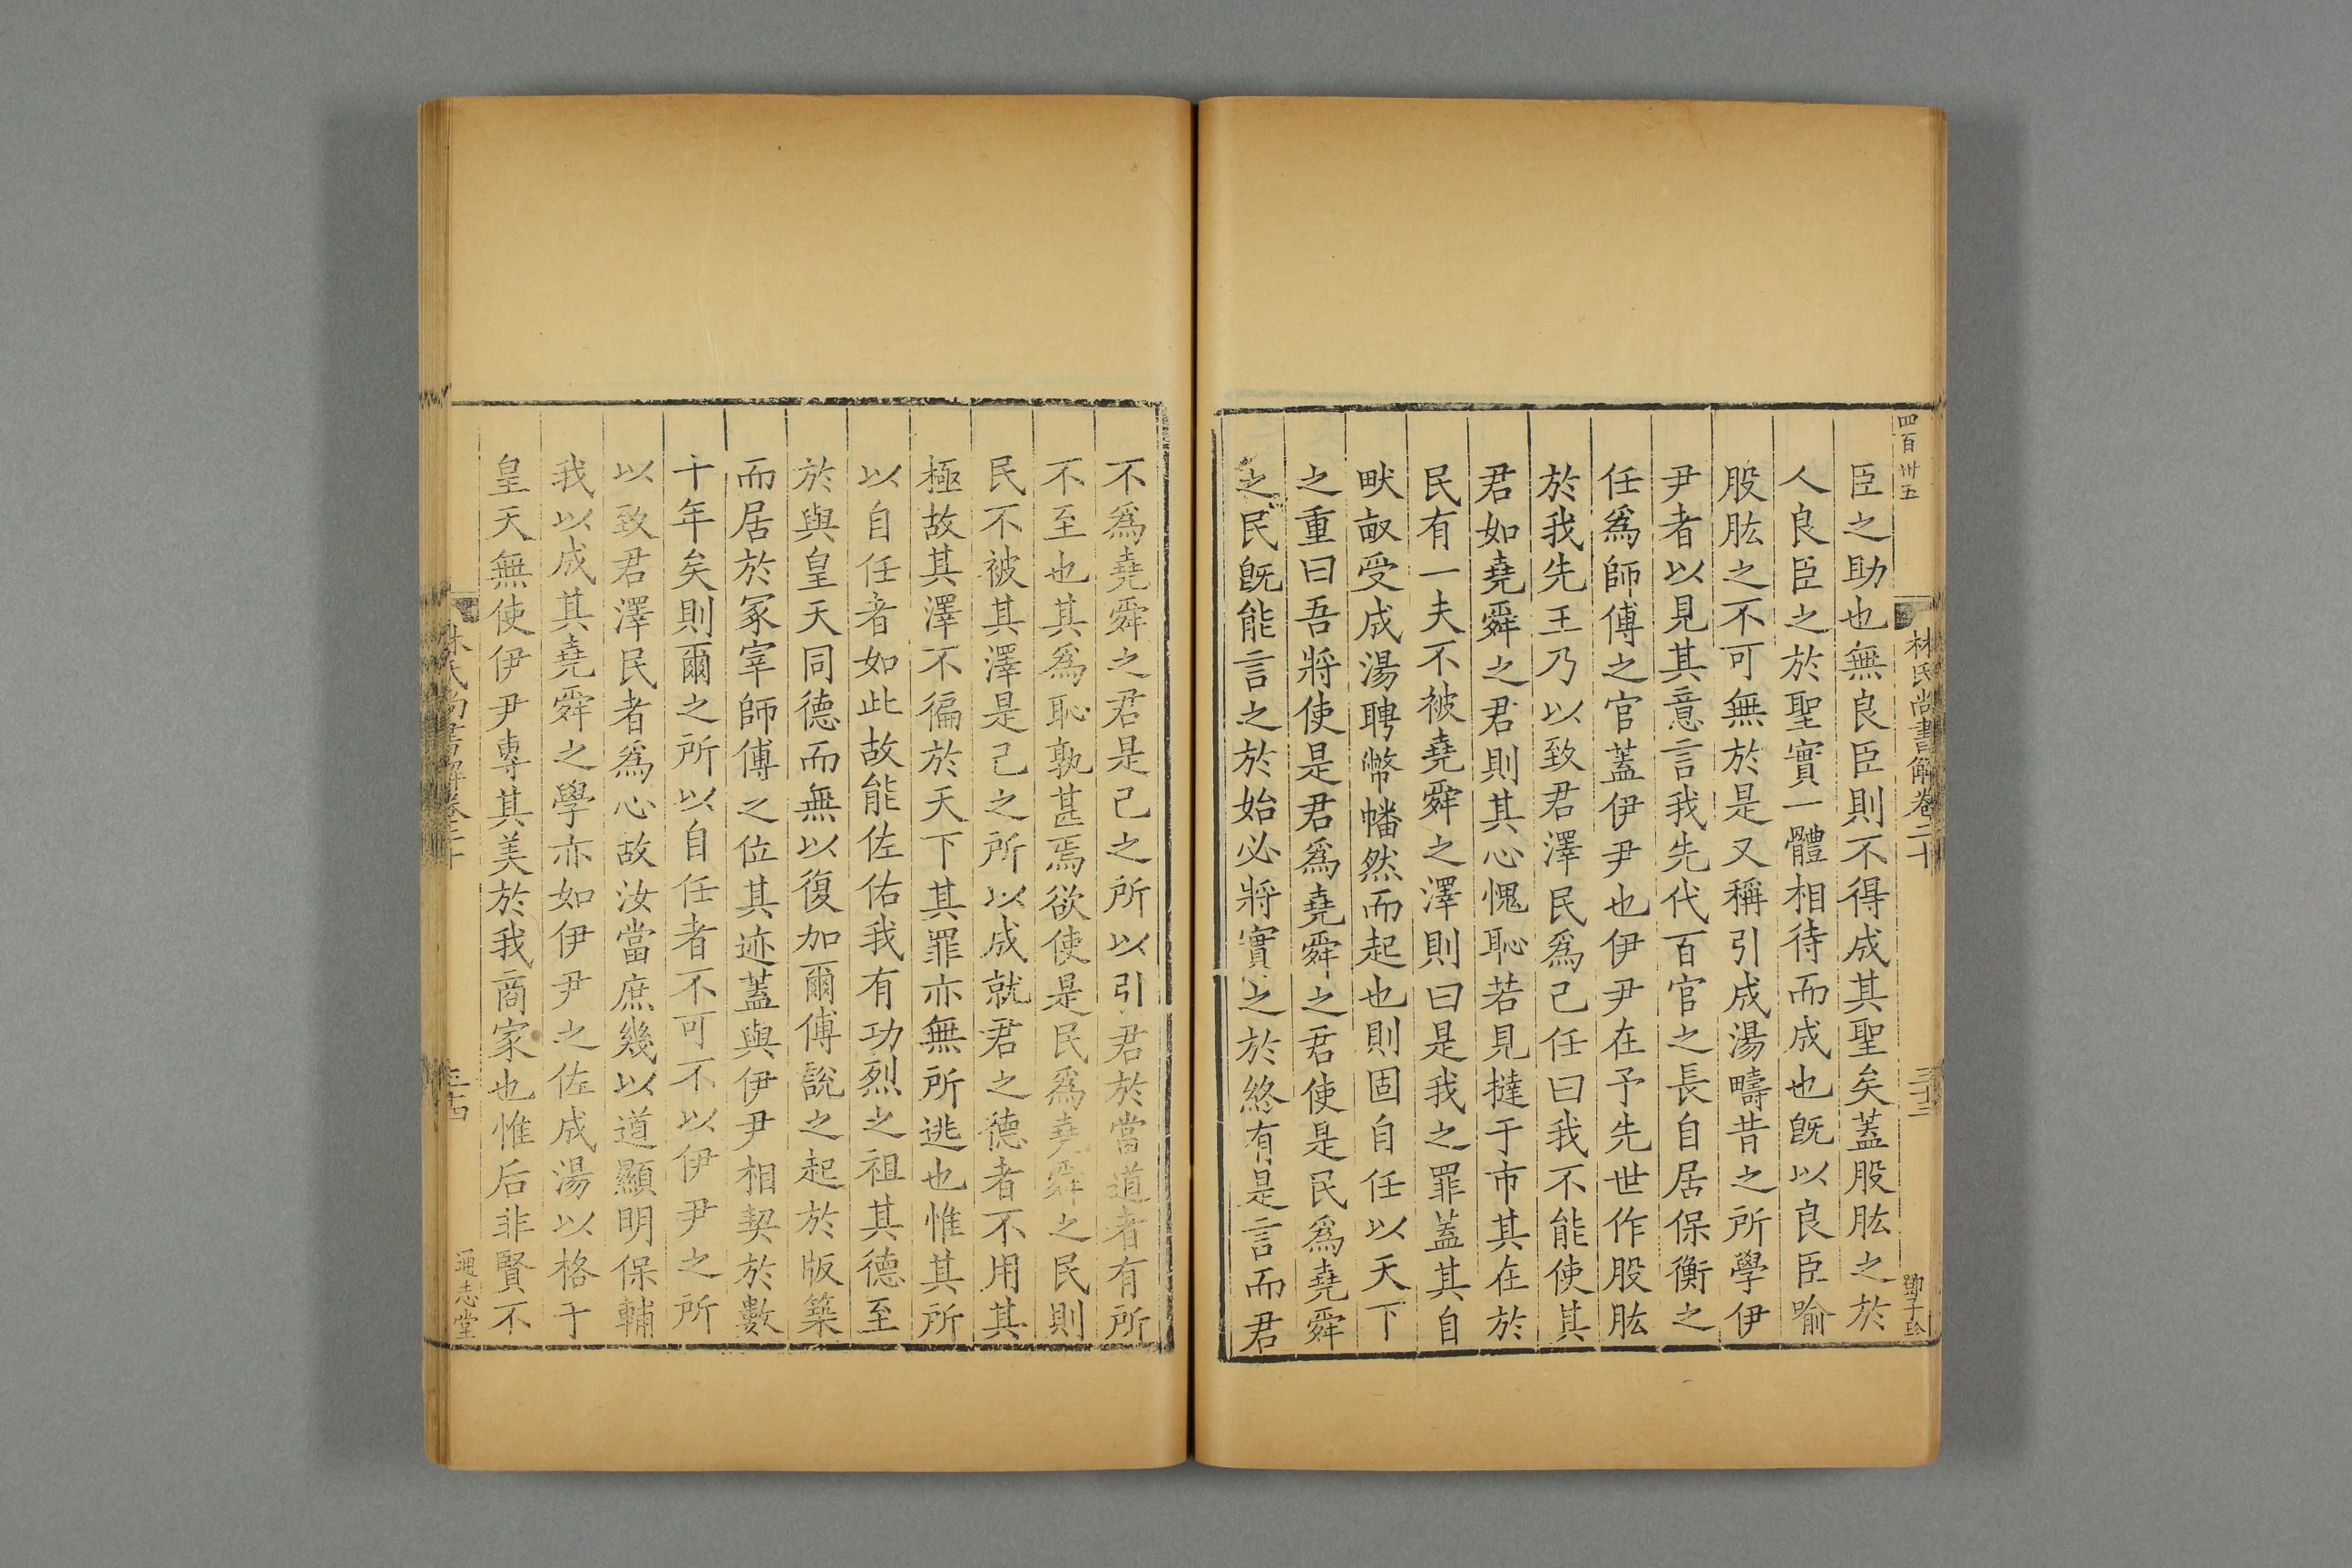 四百卅五
林氏尚書解卷二十
三十三
鄧子珍
臣之助也無良臣則不得成其聖矣蓋股肱之於
人良臣之於聖實一體相待而成也旣以良臣喻
股肱之不可無於是又稱引成湯疇昔之所學伊
尹者以見其意言我先代百官之長自居保衡之
任爲師傅之官蓋伊尹也伊尹在予先世作股肱
於我先王乃以致君澤民爲己任曰我不能使其
君如堯舜之君則其心愧恥若見撻于市其在於
民有一夫不被堯舜之澤則曰是我之罪蓋其自
畎畝受成湯聘幣幡然而起也則固自任以天下
之重曰吾將使是君爲堯舜之君使是民爲堯舜
之民旣能言之於始必將實之於終有是言而君
不爲堯舜之君是己之所以引君於當道者有所
不至也其爲恥孰甚焉欲使是民爲堯舜之民則
民不被其澤是己之所以成就君之德者不用其
極故其澤不徧於天下其罪亦無所逃也惟其所
以自任者如此故能佐佑我有功烈之祖其德至
於與皇天同德而無以復加爾傅說之起於版築
而居於冢宰師傅之位其迹蓋與伊尹相契於數
十年矣則爾之所以自任者不可不以伊尹之所
以致君澤民者爲心故汝當庶幾以道顯明保輔
我以成其堯舜之學亦如伊尹之佐成湯以格于
皇天無使伊尹專其美於我商家也惟后非賢不
林氏尚書解卷二十
三十四
通志堂